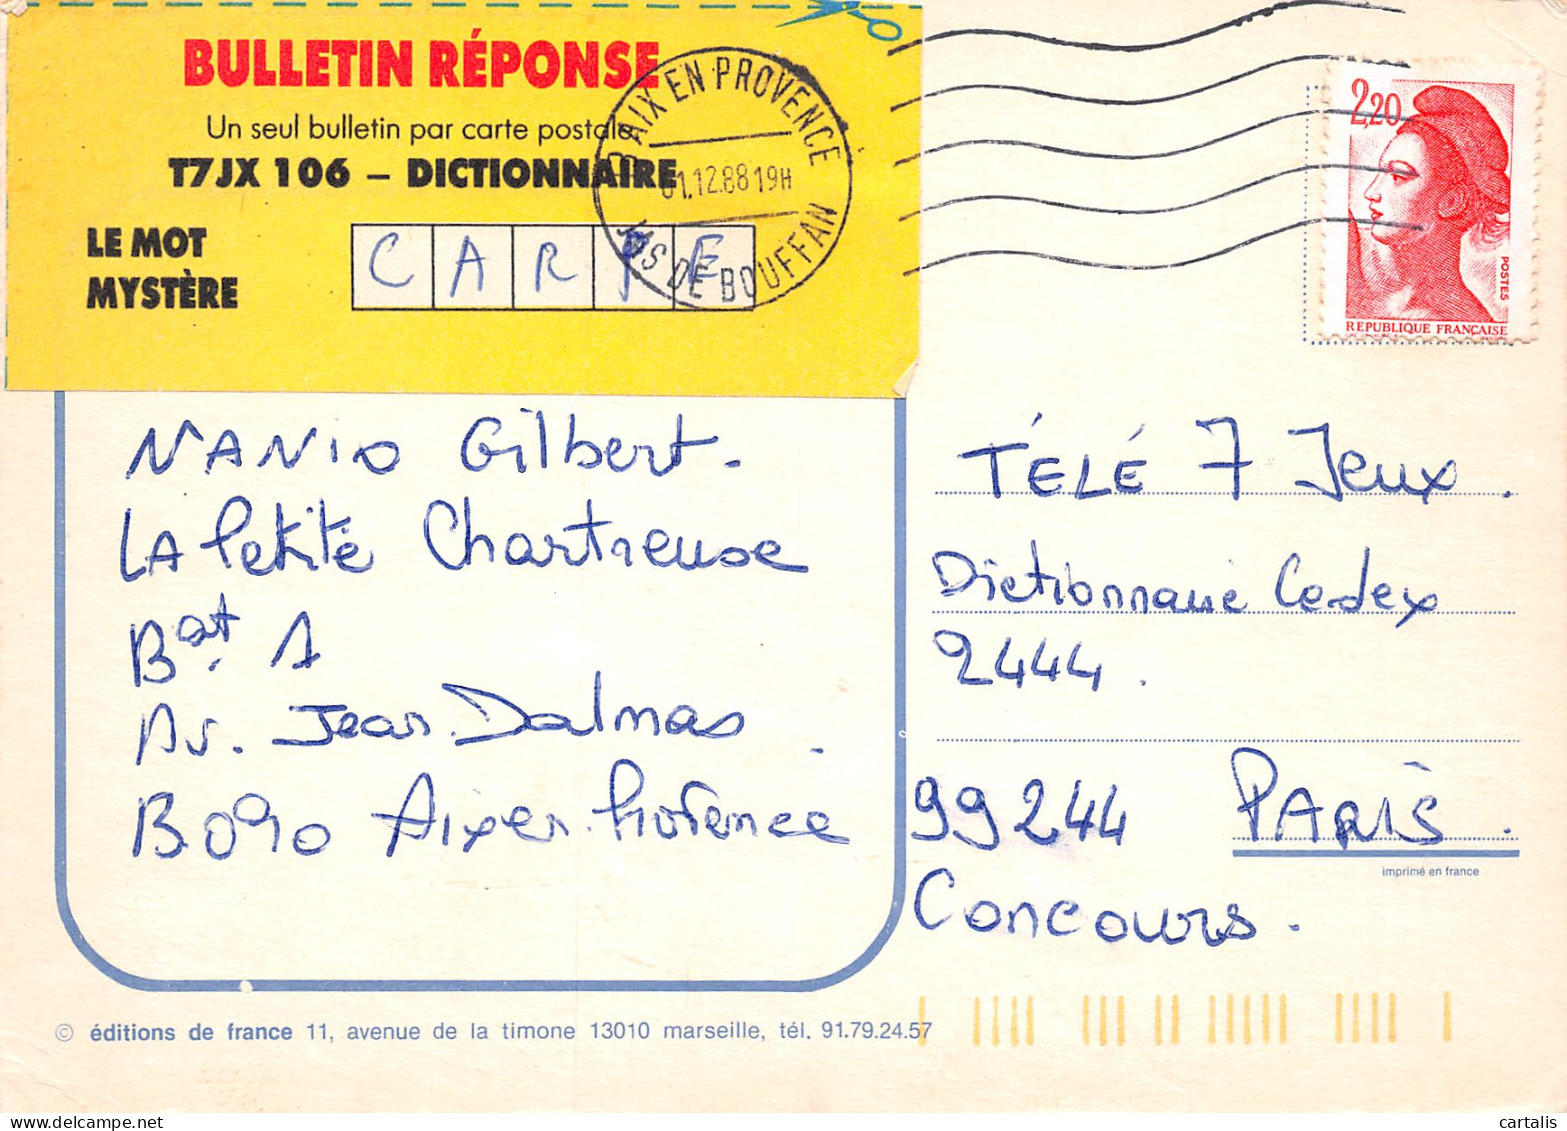 BULLETIN RÉPONSE
Un seul bulletin par carte postale
T7JX 106 – DICTIONNAIRE
LE MOT
MYSTÈRE
C A R P E
AIX EN PROVENCE
01.12.88 19H
JAS DE BOUFFAN
2,20
POSTES
REPUBLIQUE FRANÇAISE
NANIO Gilbert.
LA Petite Chartreuse
Bat. A
Av. Jean Dalmas.
13090 Aix en Provence
TÉLÉ 7 Jeux.
Dictionnaire Cedex
2444.
99244 PARIS.
imprimé en france
Concours.
© éditions de france 11, avenue de la timone 13010 marseille, tél. 91.79.24.57
cartalis